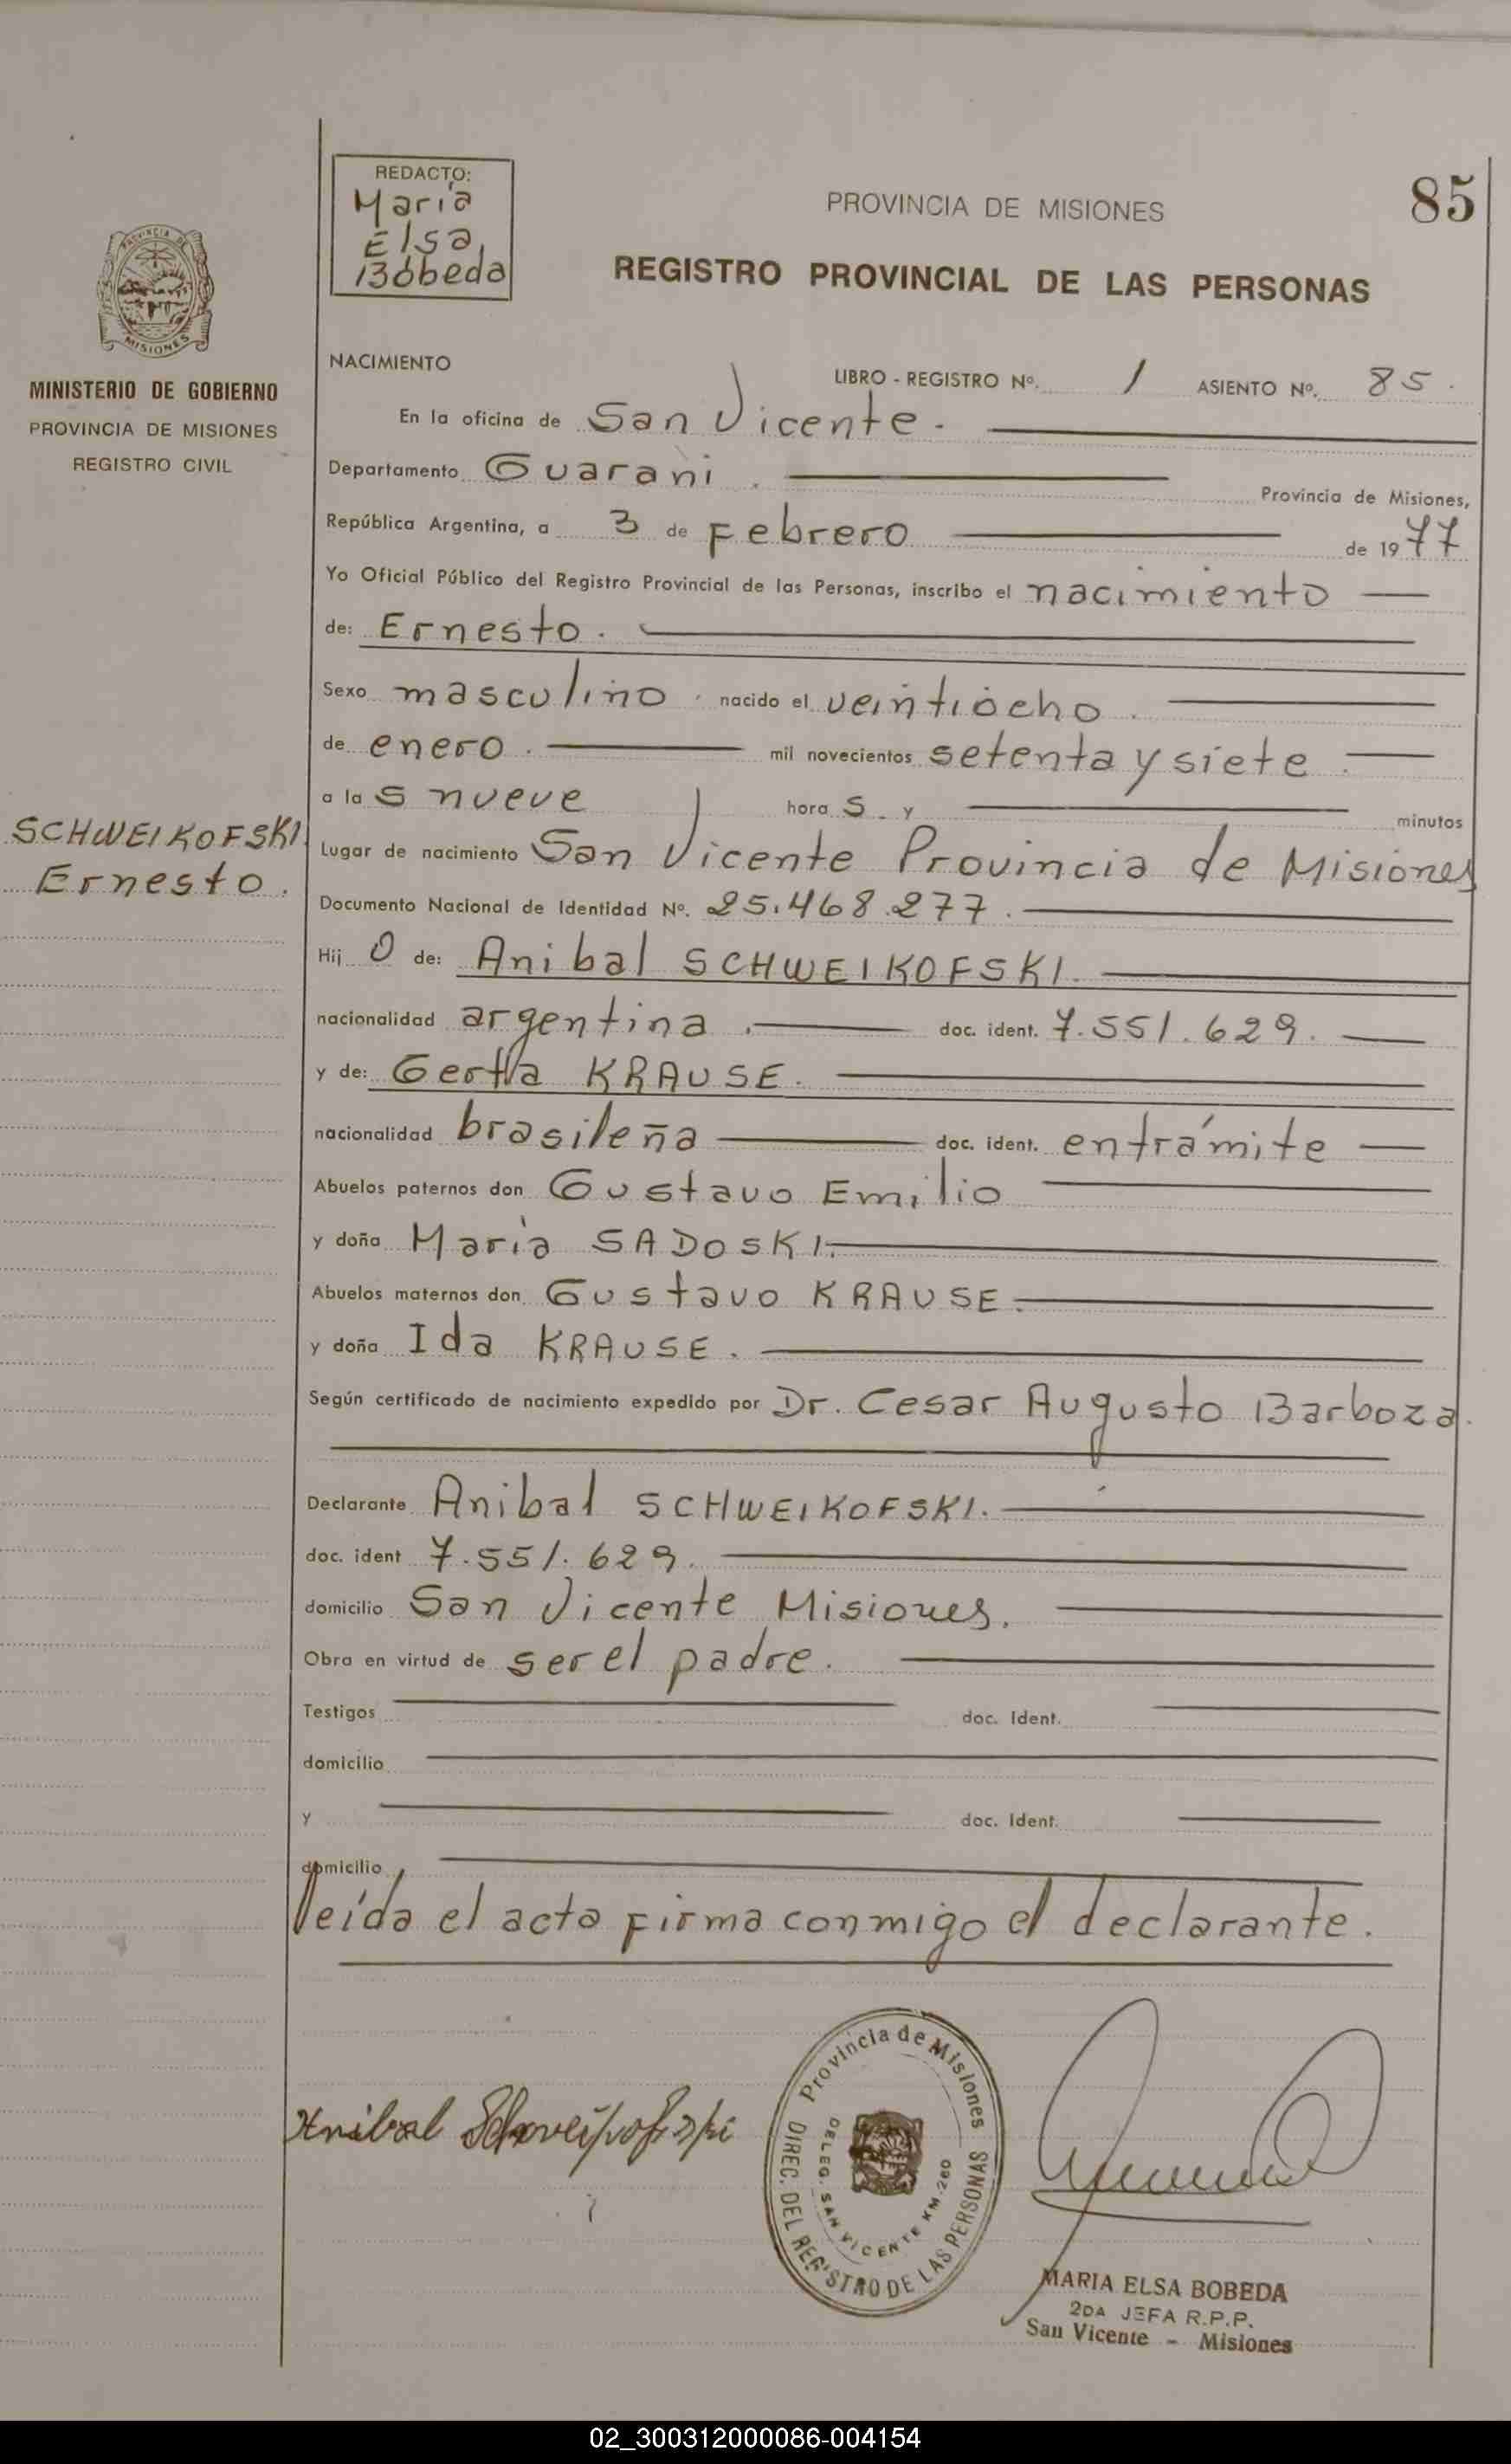 REDACTO:
María
Elsa
Bóbeda
PROVINCIA DE MISIONES
85
REGISTRO PROVINCIAL DE LAS PERSONAS
PROVINCIA DE
MISIONES
MINISTERIO DE GOBIERNO
PROVINCIA DE MISIONES
REGISTRO CIVIL
NACIMIENTO
LIBRO - REGISTRO Nº. 1 ASIENTO Nº. 85.
En la oficina de San Vicente.
Departamento Guaraní. Provincia de Misiones,
República Argentina, a 3 de Febrero de 1977
Yo Oficial Público del Registro Provincial de las Personas, inscribo el nacimiento
de: Ernesto.
Sexo masculino. nacido el veintiocho.
de enero. mil novecientos setenta y siete.
a las nueve horas. y minutos
SCHWEIKOFSKI
Ernesto.
Lugar de nacimiento San Vicente Provincia de Misiones
Documento Nacional de Identidad Nº. 25.468.277.
Hijo de: Anibal SCHWEIKOFSKI.
nacionalidad argentina. doc. ident. 7.551.629.
y de: Gertla KRAUSE.
nacionalidad brasileña doc. ident. entrámite
Abuelos paternos don Gustavo Emilio
y doña María SADOSKI.
Abuelos maternos don Gustavo KRAUSE.
y doña Ida KRAUSE.
Según certificado de nacimiento expedido por Dr. Cesar Augusto Barboza.
Declarante Anibal SCHWEIKOFSKI.
doc. ident 7.551.629.
domicilio San Vicente Misiones.
Obra en virtud de ser el padre.
Testigos doc. Ident.
domicilio
y doc. Ident.
domicilio
leída el acta firma conmigo el declarante.
Anibal Schweikofski
Provincia de Misiones
DIREC. DEL REGISTRO DE LAS PERSONAS
DELEG. SAN VICENTE KM. 260
MARIA ELSA BOBEDA
2DA JEFA R.P.P.
San Vicente - Misiones
02_300312000086-004154